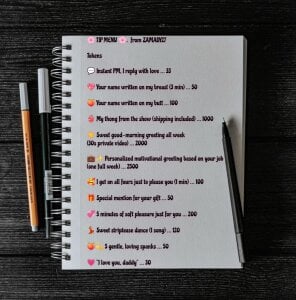 🌸 TIP MENU 🌸, from ZAMAIN17
Tokens
💬 Instant PM, I reply with love ... 33
💖 Your name written on my breast (3 min) ... 50
🍑 Your name written on my butt ... 100
👙 My thong from the show (shipping included) ... 1000
☀️ Sweet good-morning greeting all week
(30s private video) ... 2000
💼✨ Personalized motivational greeting based on your job
(one full week) ... 2500
🥰 I get on all fours just to please you (1 min) ... 100
🎁 Special mention for your gift ... 50
💕 5 minutes of soft pleasure just for you ... 200
💃 Sweet striptease dance (1 song) ... 120
🍑✨ 5 gentle, loving spanks ... 50
💗 "I love you, daddy" ... 30